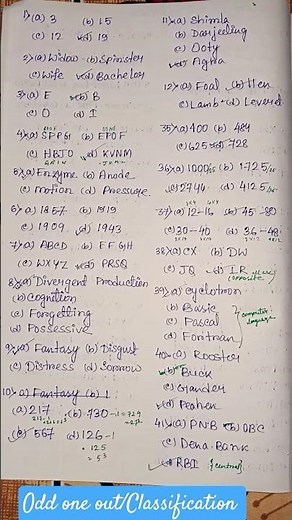 1) (a) 3 (b) 15
(c) 12 (d) 19
2) (a) Widow (b) Spinster
(c) Wife (d) Bachelor
3) (a) E (b) B
(c) O (d) I
4) (a) SPPGI (b) EPDF
(c) HBTO (d) KVNM
5) (a) Enzyme (b) Anode
(c) motion (d) Pressure.
6) (a) 1857 (b) 1919
(c) 1909 (d) 1943
7) (a) ABCD (b) EFGH
(c) WXYZ (d) PRSQ
8) (a) Divergent Production
(b) Cognition
(c) Forgetting
(d) Possessive
9) (a) Fantasy (b) Disgust
(c) Distress (d) Sorrow
10) (a) Fantasy (b) 1
(a) 217 (b) 730 -1 = 729
(c) 567 (d) 126-1
= 125
= 5³
11) (a) Shimla
(b) Darjeeling
(c) Ooty
(d) Agra
12) (a) Foal (b) Hen
(c) Lamb (d) Leveret
35) (a) 400 (b) 484
(c) 625 (d) 728
36) (a) 1000 (b) 1725
(c) 2744 (d) 4125
37) (a) 12-16 (b) 45-80
(c) 30-40 (d) 36-48
38) (a) CX (b) DW
(c) JQ (d) IR
opposite
39) (a) cyclotron
(b) Basic
(c) Pascal
(d) Fortran
computer
language
40) (a) Rooster
(b) Buck
(c) Gander
(d) Peahen
41) (a) PNB (b) OBC
(c) Dena Bank
RBI (central)
Odd one out/Classification